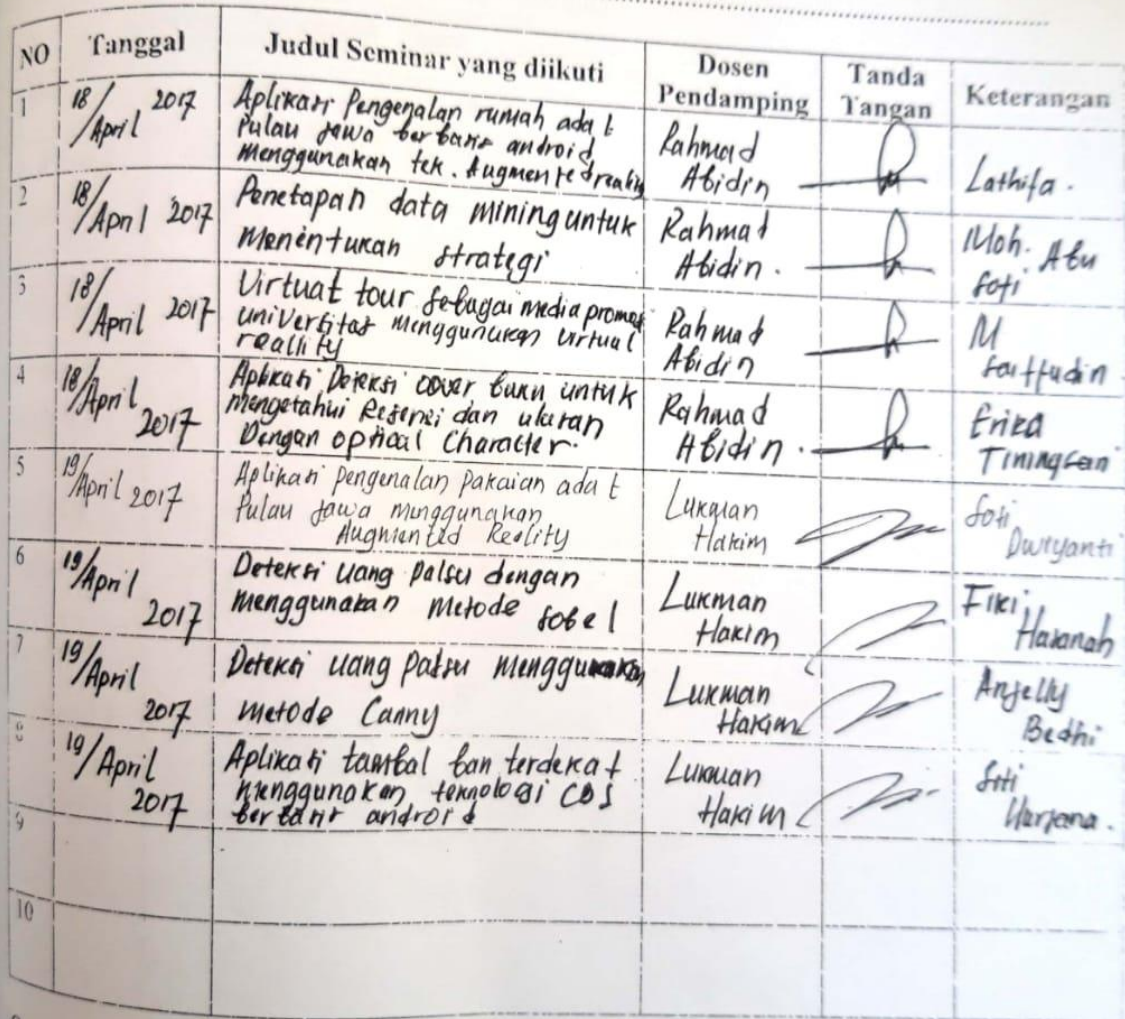 NO Tanggal Judul Seminar yang diikuti Dosen Pendamping Tanda Tangan Keterangan
1 18/April 2017 Aplikasi Pengenalan rumah adat
Pulau Jawa berbasis android
menggunakan tek. Augmented reality
Rahmad
Abidin
Lathifa.
2 18/April 2017 Penetapan data mining untuk
menentukan strategi
Rahmad
Abidin.
Moh. Abu
3 18/April 2017 Virtual tour sebagai media promosi
universitas menggunakan virtual
reallity
Rahmad
Abidin
M
4 18/April
2017
Aplikasi Deteksi cover buku untuk
mengetahui Resensi dan ulasan
Dengan optical Character.
Rahmad
Abidin.
Erika
5 19/April 2017 Aplikasi pengenalan pakaian adat
Pulau Jawa menggunakan
Augmented Reality
Lukman
Hakim
Dwiyanti
6 19/April
2017
Deteksi uang palsu dengan
menggunakan metode sobel
Lukman
Hakim
Fiki
Hasanah
7 19/April
2017
Deteksi uang palsu menggunakan
metode Canny
Lukman
Hakim
Anjelly
Bedhi
8 19/April
2017
Aplikasi tambal ban terdekat
menggunakan teknologi
berbasis android
Lukman
Hakim
Siti
9
10